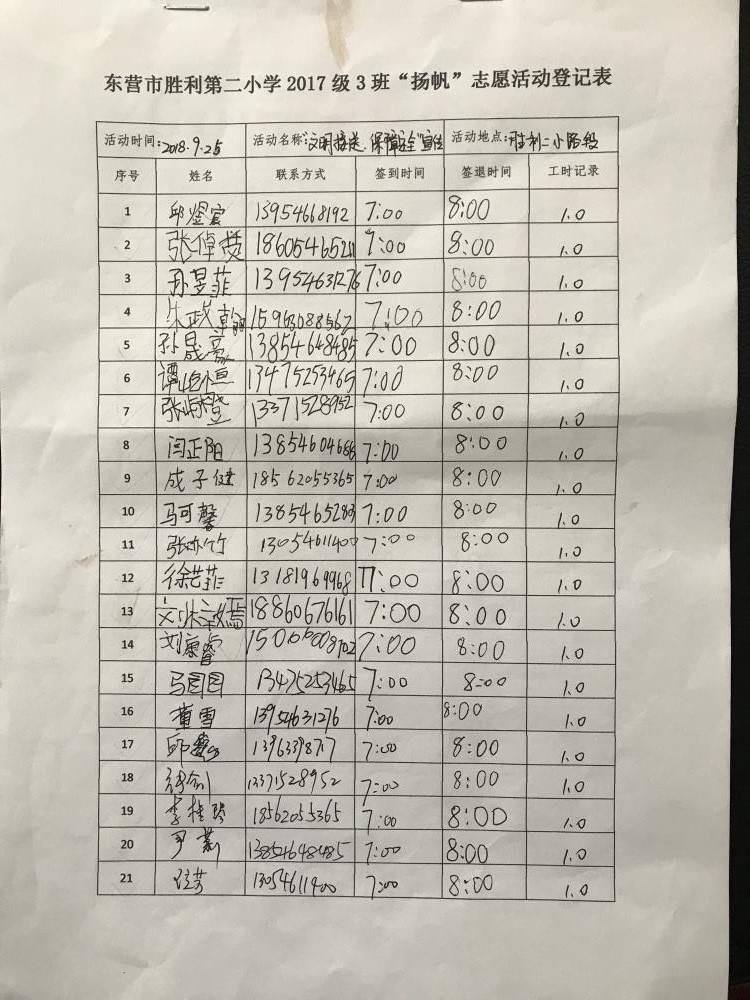 东营市胜利第二小学 2017 级 3 班“扬帆”志愿活动登记表
活动时间:2018.9.25 活动名称:“文明接送、保障安全”宣传 活动地点:胜利二小路段
序号 姓名 联系方式 签到时间 签退时间 工时记录
1 邱煜宸 13954668192 7:00 8:00 1.0
2 张倬 18605465211 7:00 8:00 1.0
3 孙昱菲 13954631276 7:00 8:00 1.0
4 朱政 7:00 8:00 1.0
5 孙晟嘉 13854648485 7:00 8:00 1.0
6 谭皓恒 13475253465 7:00 8:00 1.0
7 张皓橙 13371528952 7:00 8:00 1.0
8 闫正阳 13854604666 7:00 8:00 1.0
9 成子健 18562055365 7:00 8:00 1.0
10 马可馨 7:00 8:00 1.0
11 张亦竹 13054611400 7:00 8:00 1.0
12 徐芸菲 13181969968 7:00 8:00 1.0
13 18860676161 7:00 8:00 1.0
14 刘康睿 7:00 8:00 1.0
15 马园园 13475253465 7:00 8:00 1.0
16 董雪 13954631276 7:00 8:00 1.0
17 邱 7:00 8:00 1.0
18 13371528952 7:00 8:00 1.0
19 李桂 18562055365 7:00 8:00 1.0
20 尹 13854648485 7:00 8:00 1.0
21 13054611400 7:00 8:00 1.0